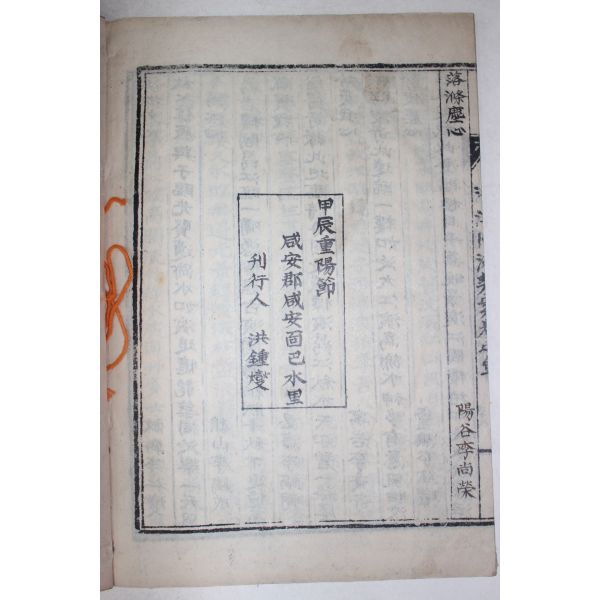 落滌塵心
陽谷李尚榮
甲辰重陽節
咸安郡咸安面巴水里
刊行人 洪鍾燮